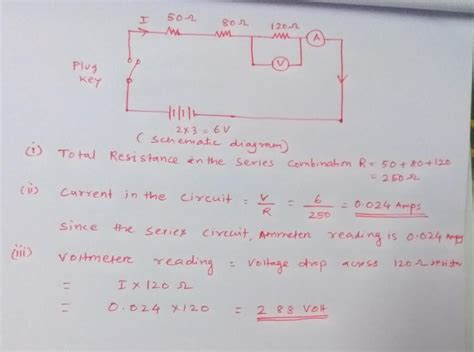 I 50Ω 80Ω 120Ω A
V
Plug
Key
2x3 = 6V
( Schematic diagram)
(i) Total Resistance in the Series Combination R = 50 + 80 + 120
= 250 Ω
(ii) Current in the Circuit = V/R = 6/250 = 0.024 Amps
Since the series circuit, Ammeter reading is 0.024 Amps
(iii) Voltmeter reading = Voltage drop across 120Ω resistor
= I x 120 Ω
= 0.024 x 120 = 2 88 Volt